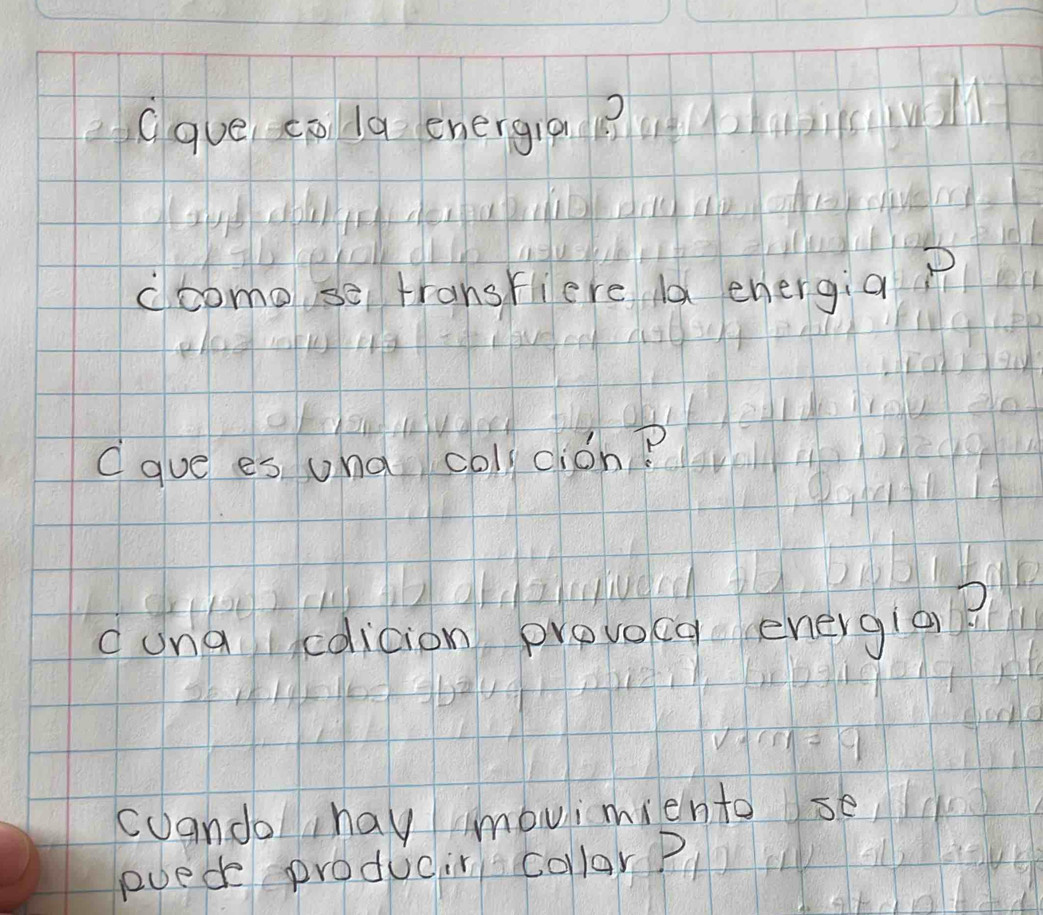 ¿que es la energia?
¿como se transfiere la energia?
¿que es una colición?
¿una colicion provoca energia?
cuando hay movimiento se
puede producir collar?